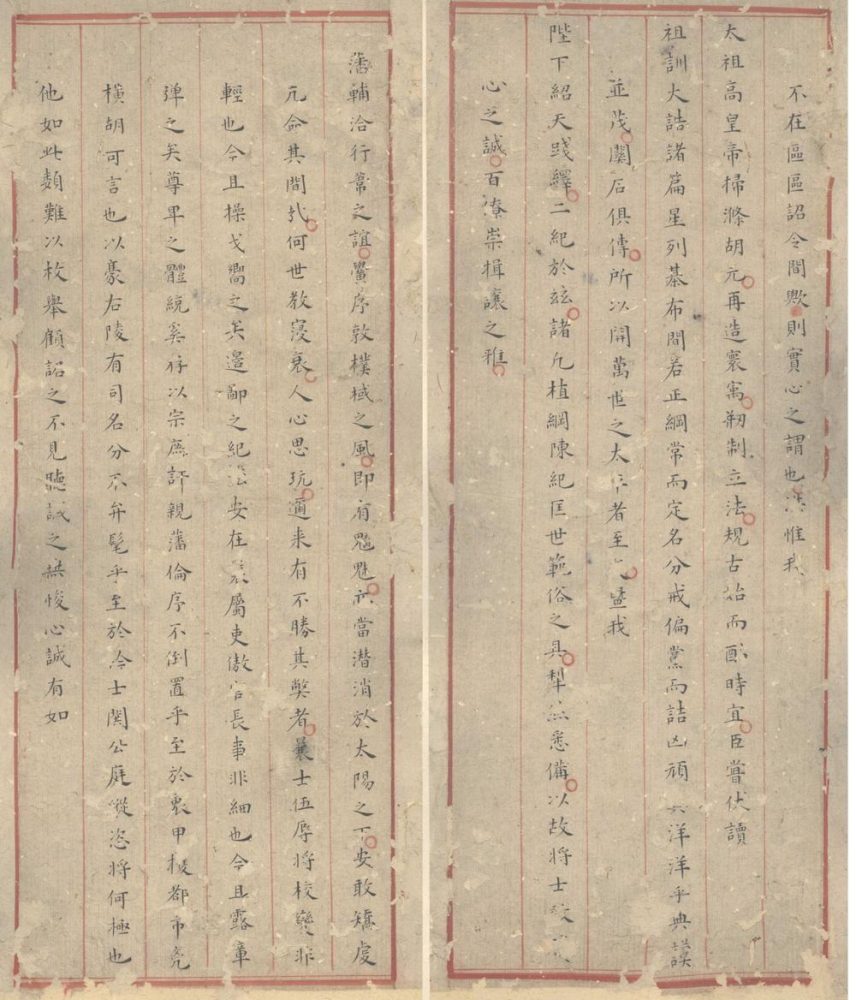 不在區區詔令間歟則實心之謂也洪惟我
太祖高皇帝掃滌胡元再造寰寓剏制立法規古始而酌時宜臣嘗伏讀
祖訓大誥諸篇星列棊布間若正綱常而定名分戒偏黨而詰凶頑洋洋乎典謨
並茂關石俱傳所以開萬世之太平者至我
陛下紹天踐繹二紀於玆諸凡植綱陳紀匡世範俗之具犁然悉備以故將士
心之誠百僚崇揖讓之雅
藩輔洽行葦之誼黌序敦樸棫之風即有魑魅亦當潛消於太陽之下安敢矯虔
亢命其間哉何世教寖衰人心思玩邇来有不勝其弊者曩士伍辱將校釁非
輕也今且操戈嚮之矣邉鄙之紀法安在曩屬吏傲官長事非細也今且露章
彈之矣尊卑之體統奚存以宗庶訐親藩倫序不倒置乎至於衷甲都市
橫胡可言也以豪右陵有司名分不弁髦乎至於冷士鬨公庭縱恣將何極也
他如此類難以枚舉顧詔之不見聽誡之無悛心誠有如